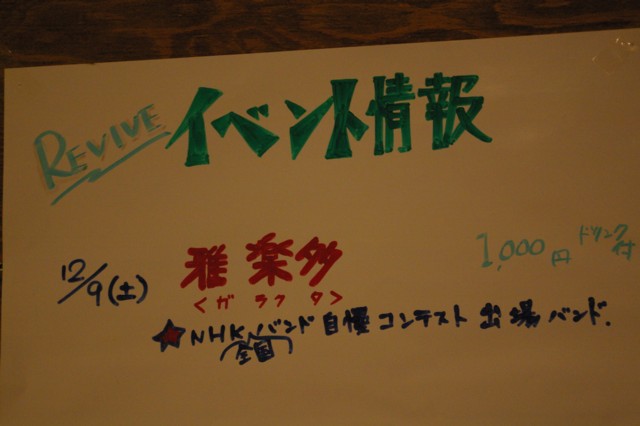 REVIVE イベント情報
12/9(土) 雅楽多 1,000円 ドリンク付
<ガラクタ>
★NHK バンド自慢コンテスト出場バンド.
(全国)